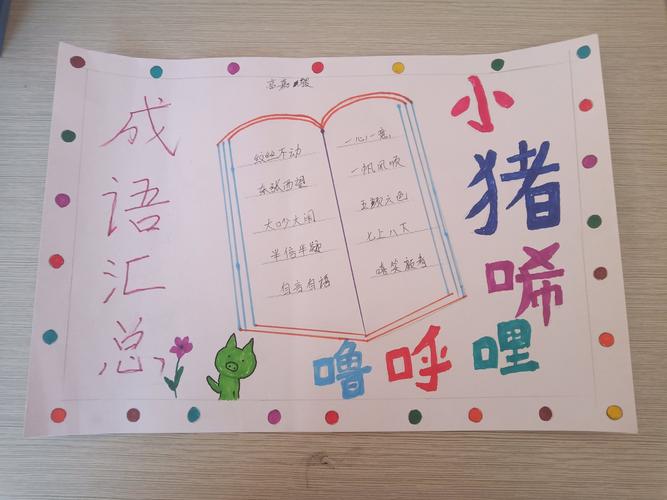 成语汇总
小猪唏哩呼噜
纹丝不动
东张西望
大吵大闹
半信半疑
自言自语
一心一意
一帆风顺
五颜六色
七上八下